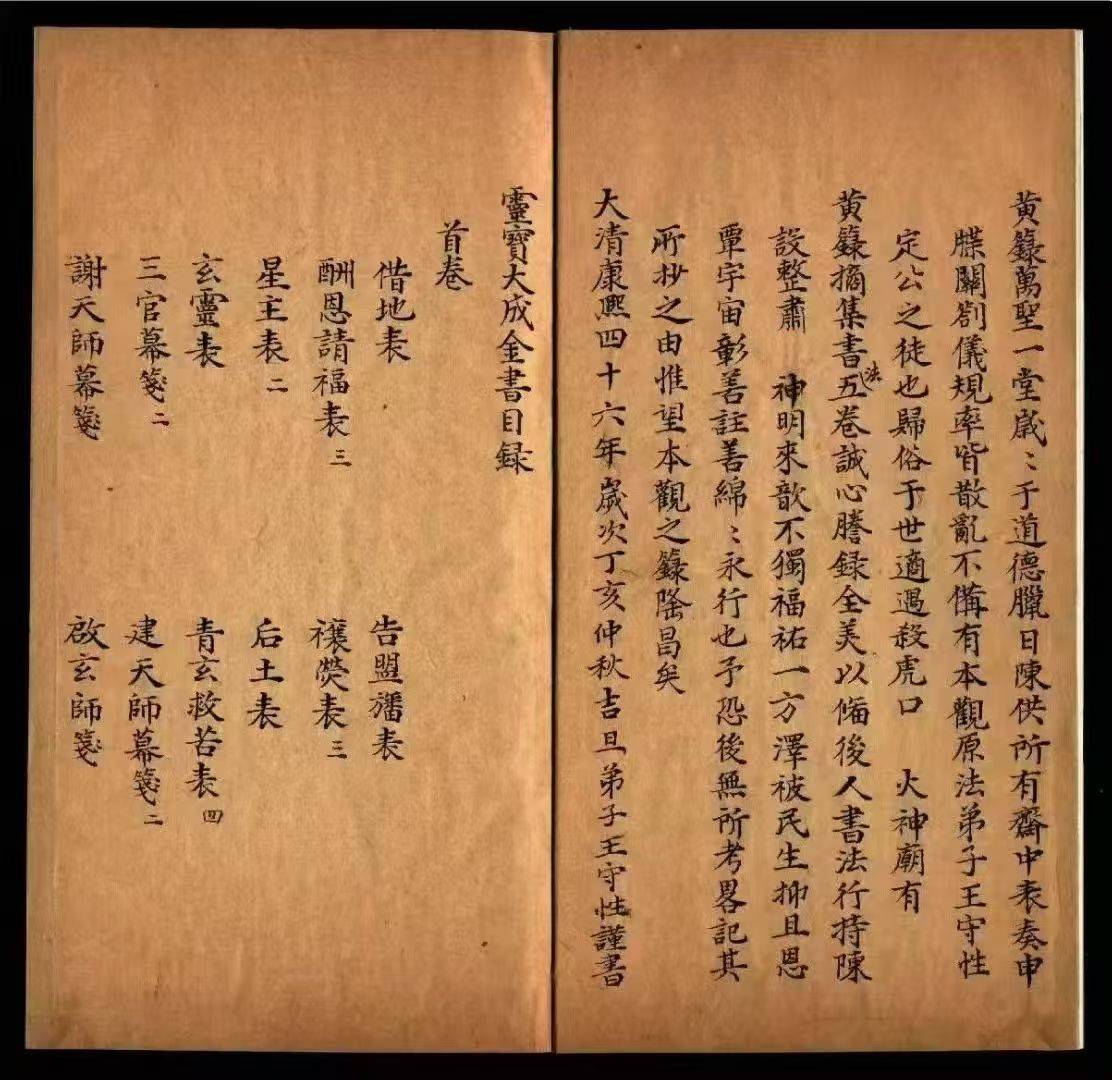 黄籙萬聖一堂歲〻于道德臘日陳供所有齋中表奏申
牒關劄儀規率皆散亂不備有本觀原法弟子王守性
定公之徒也歸俗于世適遇殺虎口 火神廟有
黄籙摘集書五法卷誠心謄録全美以俻後人書法行持陳
設整肅 神明來歆不獨福祐一方澤被民生抑且恩
覃宇宙彰善註善綿〻永行也予恐後無所考畧記其
所抄之由惟望本觀之籙隆昌矣
大清康熙四十六年歲次丁亥仲秋吉旦弟子王守性謹書
靈寶大成金書目録
首卷
借地表 告盟旛表
酬恩請福表三 禳熒表三
星主表二 后土表
玄靈表 青玄救苦表四
三官幕箋二 建天師幕箋二
謝天師幕箋 啟玄師箋